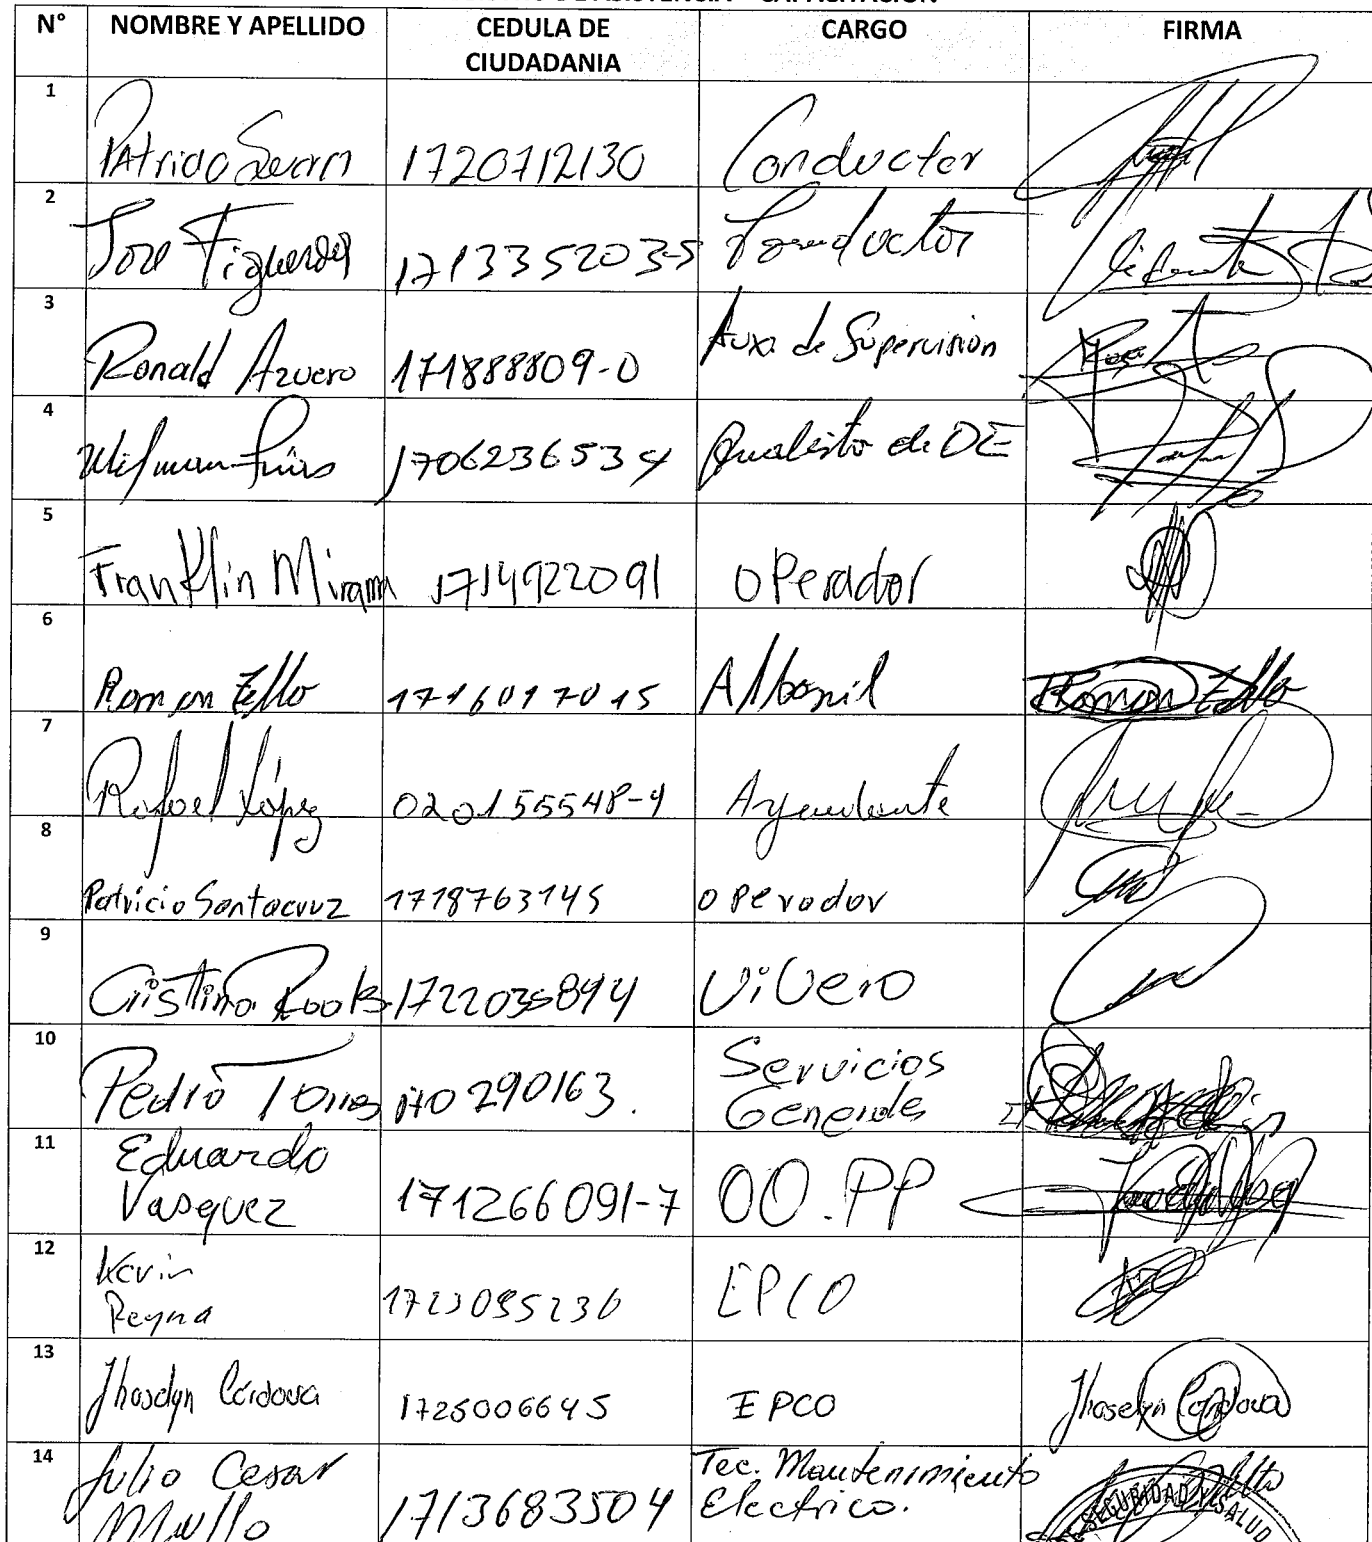 ASISTENCIA - CAPACITACION
N° NOMBRE Y APELLIDO CEDULA DE CIUDADANIA CARGO FIRMA
1 Patricio 1720712130 Conductor
2 Jose Figueroa 171335203-5 Conductor
3 Ronald Azuero 171888809-0 Aux. de Supervision
4 Wilman 1706236534 de DE
5 Franklin 1714922091 Operador
6 Roman Tello 1716017015 Albañil Roman Tello
7 Rafael López Ayudante
8 Patricio Santacruz 1718763145 Operador
9 Cristina ViVero
10 Pedro Torres Servicios Generales
11 Eduardo Vasquez 171266091-7 OO.PP
12 Kevin Reyna EPCO
13 Jhoselyn Córdova 1725006645 EPCO Jhoselyn Cordova
14 Julio Cesar 1713683504 Tec. Mantenimiento Electrico.
SEGURIDAD Y SALUD